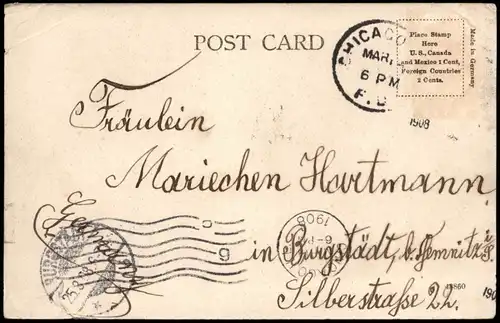 POST CARD
CHICAGO
MAR.
6 PM
Place Stamp
Here
U.S., Canada
and Mexico 1 Cent,
Foreign Countries
2 Cents.
Made in Germany
1908
Fräulein
Mariechen Hartmann
in Burgstädt, b. Chemnitz i. S.
Silberstrasse 22.
Germany
BURGSTÄDT
1908